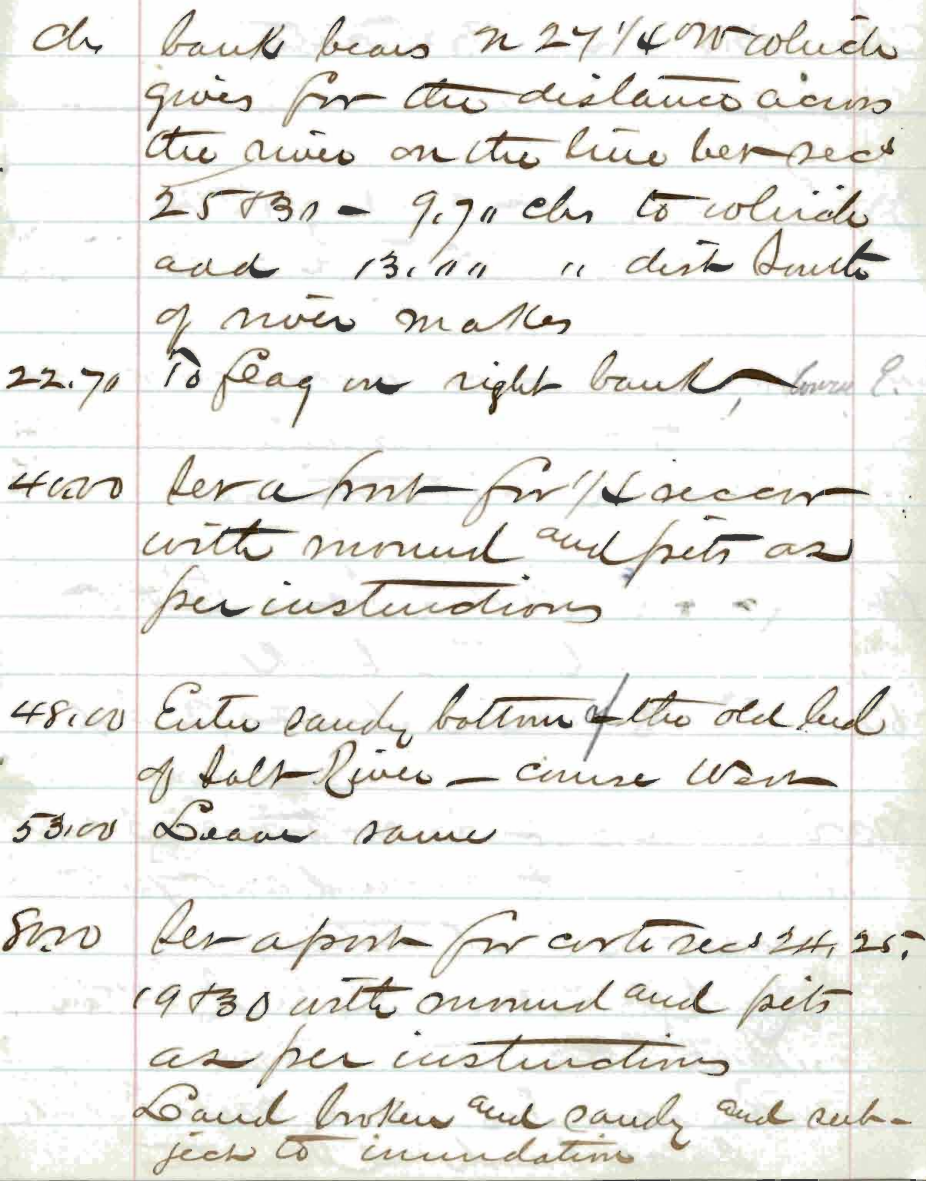 chs bank bears N 27 1/4° W which
gives for the distance across
the river on the line bet secs
25 & 30 – 9.70 chs to which
add 13.00 " dist South
of river makes
22.70 To flag on right bank, Course E.
40.00 Set a post for 1/4 sec cor
with mound and pits as
per instructions
48.00 Enter sandy bottom of the old bed
of Salt River – course West
53.00 Leave same
80.00 Set a post for cor to secs 24, 25,
19 & 30 with mound and pits
as per instructions
Land broken and sandy and sub-
ject to inundation